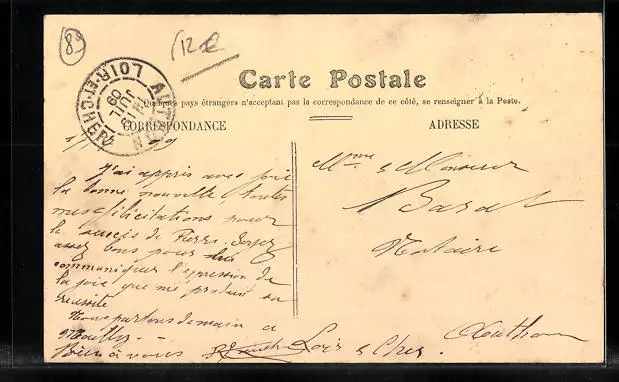 89
12 €
Carte Postale
Quelques pays étrangers n'acceptant pas la correspondance de ce côté, se renseigner à la Poste.
CORRESPONDANCE
ADRESSE
LOIR-ET-CHER
JUIL
09
J'ai appris avec joie
la bonne nouvelle, toutes
mes félicitations pour
le succès de Pierre. Soyez
assez bons pour lui
communiquer l'expression de
la joie que me produit sa
réussite
Nous partons demain a
Bien à vous
Mme & Monsieur
Barat
Notaire
Authon
Loir & Cher.